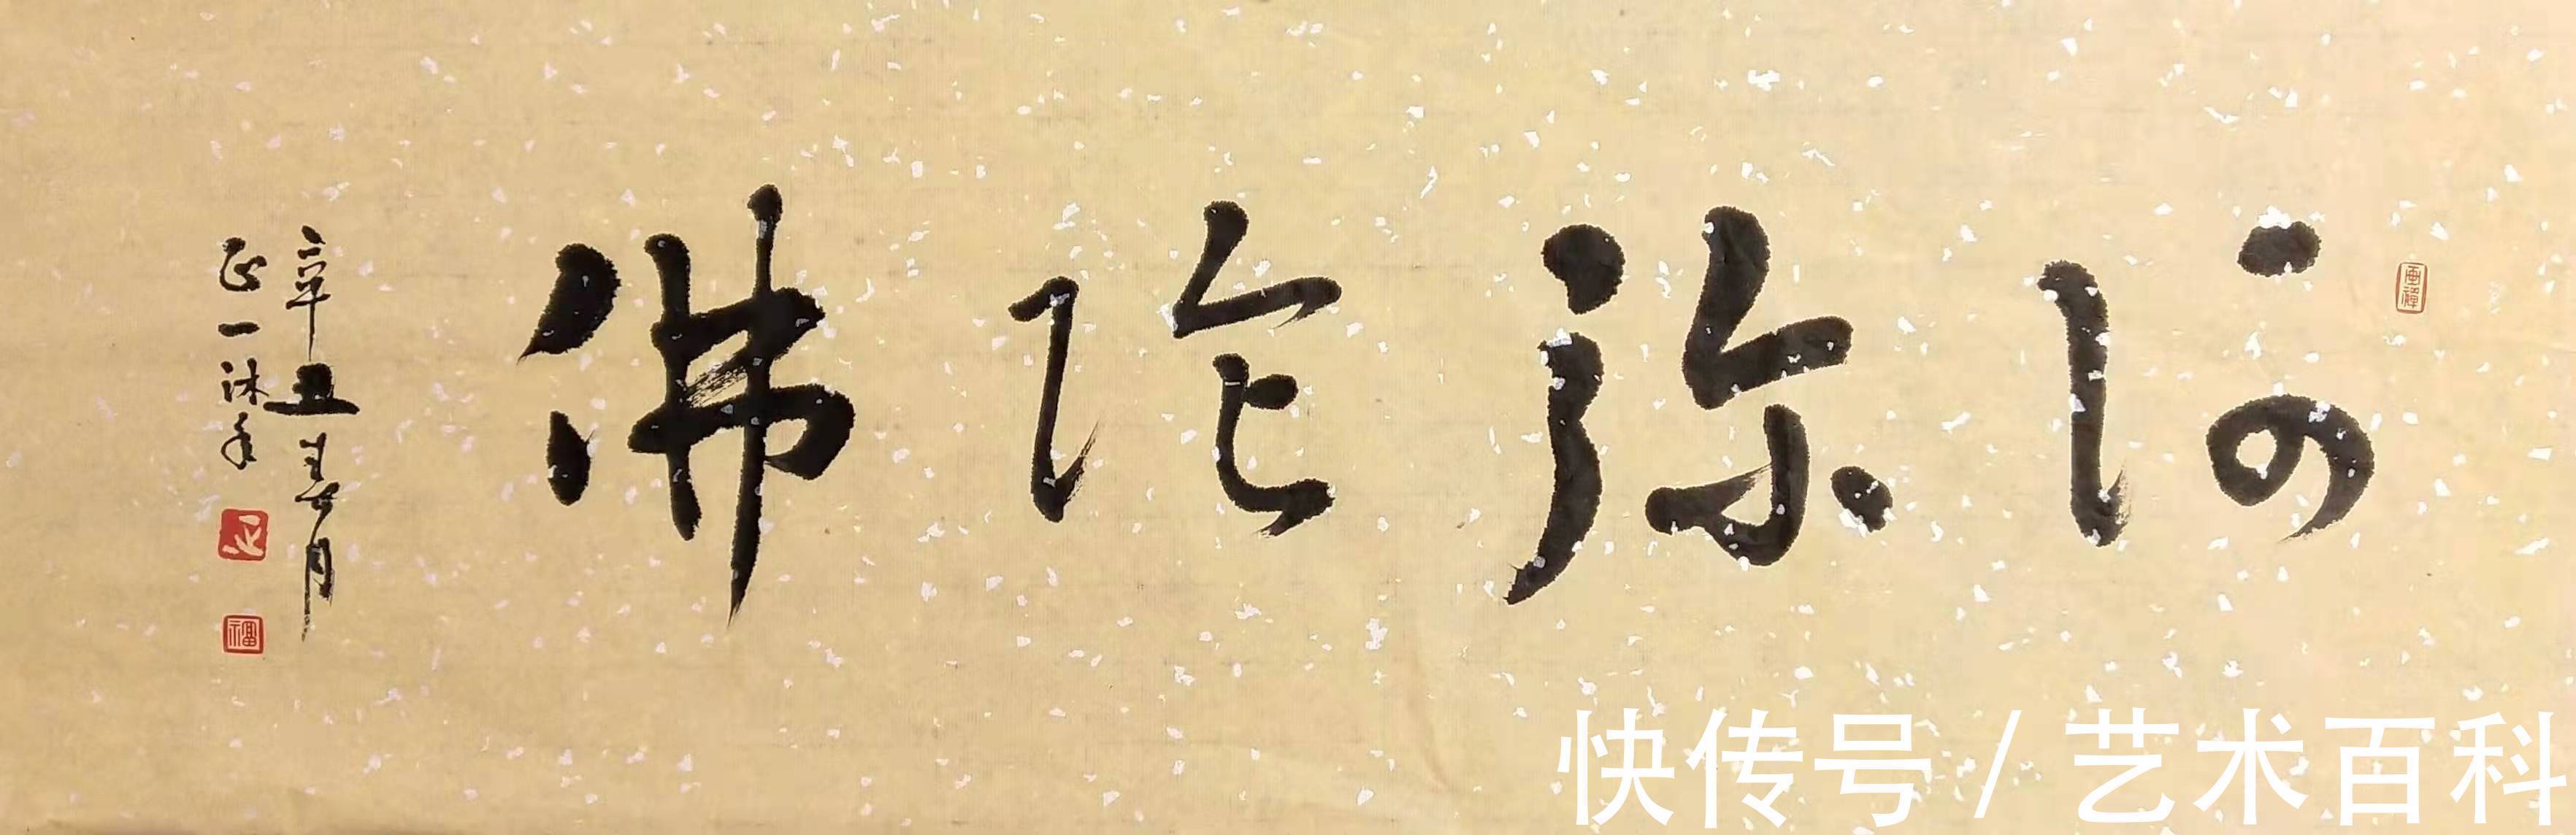 阿弥陀佛
辛丑春月
正一沐手
快传号/艺术百科